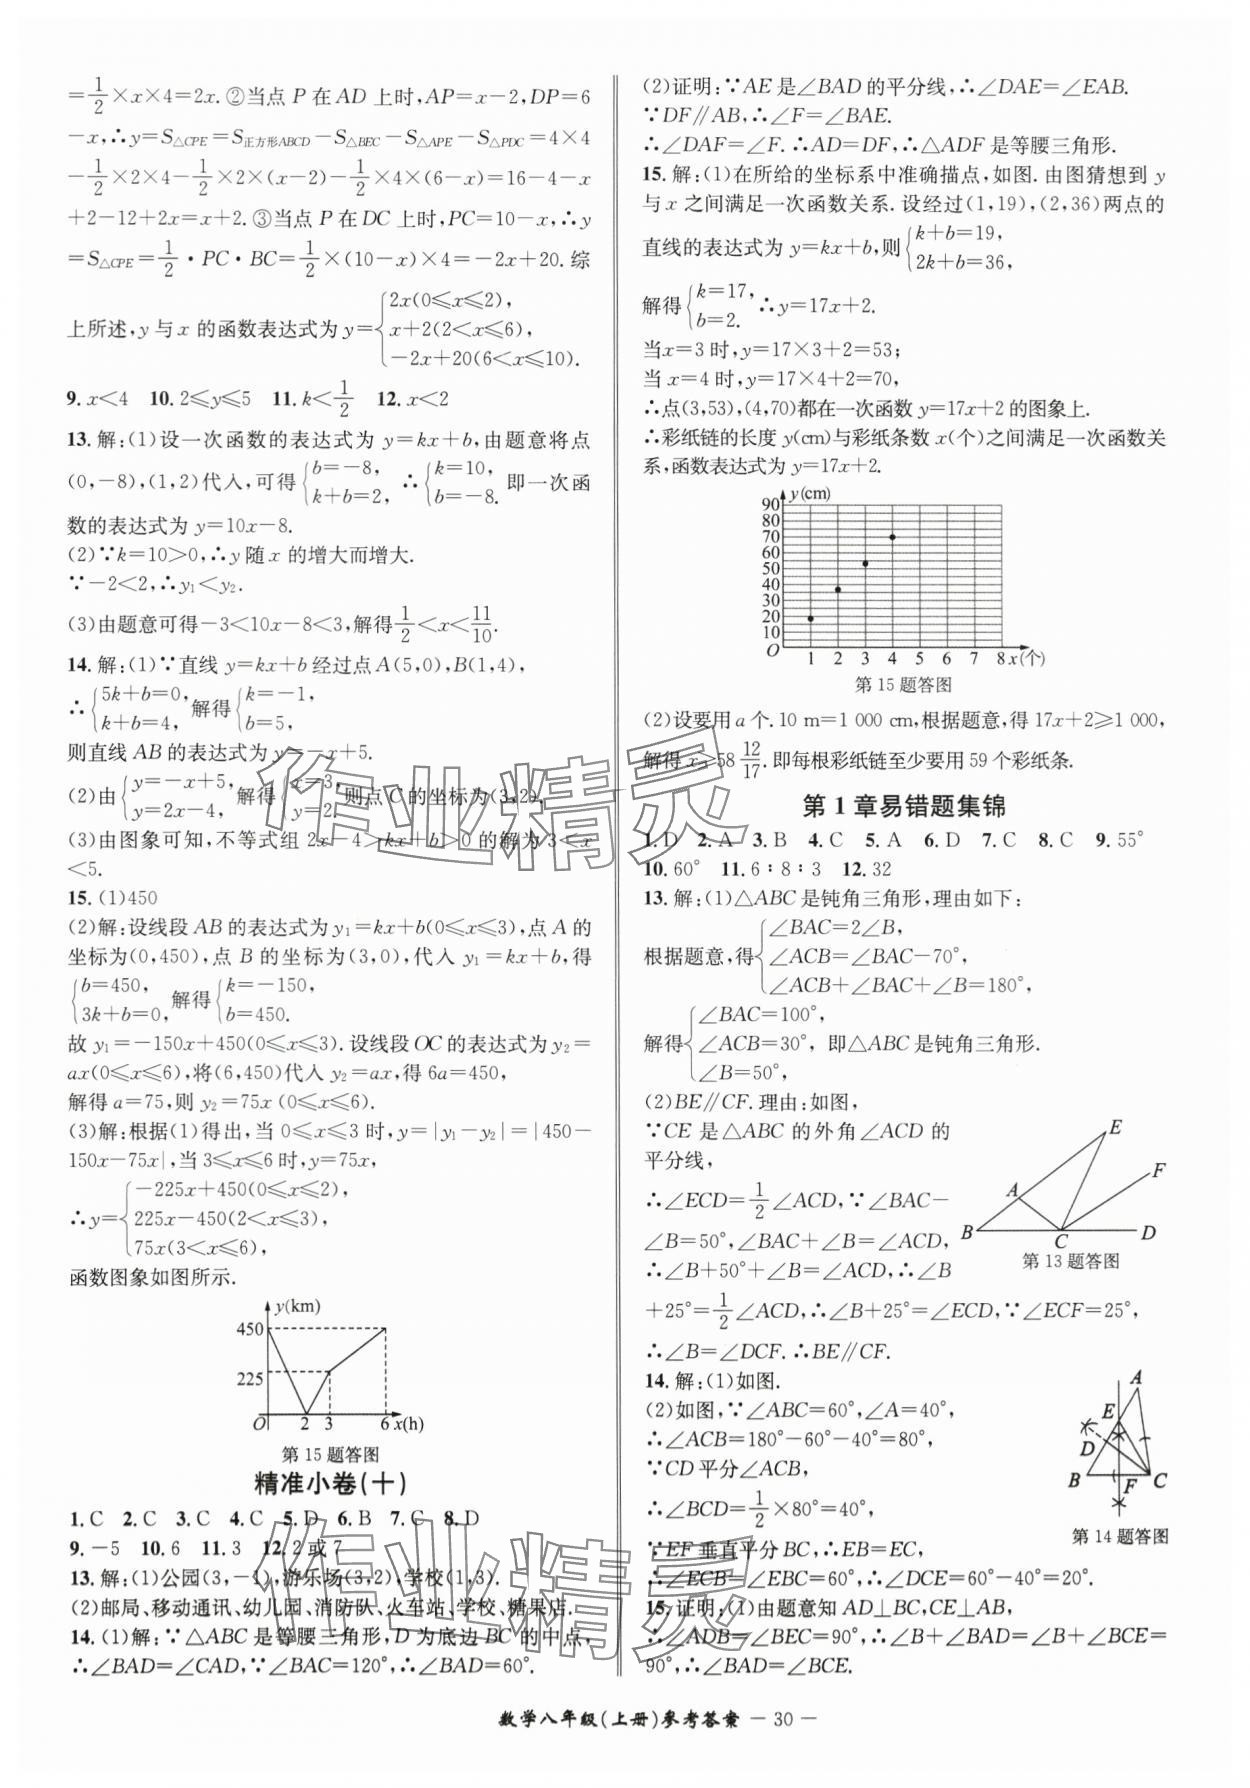 =1/2×x×4=2x. ②当点 P 在 AD 上时,AP=x-2,DP=6
-x,∴y=S△CPE=S正方形ABCD-S△BEC-S△APE-S△PDC=4×4
-1/2×2×4-1/2×2×(x-2)-1/2×4×(6-x)=16-4-x
+2-12+2x=x+2. ③当点 P 在 DC 上时,PC=10-x,∴y
=S△CPE=1/2·PC·BC=1/2×(10-x)×4=-2x+20. 综
上所述,y 与 x 的函数表达式为 y={2x(0≤x≤2),
x+2(2<x≤6),
-2x+20(6<x≤10).
9. x<4 10. 2≤y≤5 11. k<1/2 12. x<2
13. 解:(1)设一次函数的表达式为 y=kx+b,由题意将点
(0,-8),(1,2)代入,可得{b=-8, k+b=2, ∴{k=10, b=-8. 即一次函
数的表达式为 y=10x-8.
(2)∵k=10>0,∴y 随 x 的增大而增大.
∵-2<2,∴y₁<y₂.
(3)由题意可得-3<10x-8<3,解得1/2<x<11/10.
14. 解:(1)∵直线 y=kx+b 经过点 A(5,0),B(1,4),
∴{5k+b=0, k+b=4, 解得{k=-1, b=5,
则直线 AB 的表达式为 y=-x+5.
(2)由{y=-x+5, y=2x-4, 解得{x=3, y=2. 则点 C 的坐标为(3,2).
(3)由图象可知,不等式组 2x-4>kx+b>0 的解为 3<x
<5.
15. (1)450
(2)解:设线段 AB 的表达式为 y₁=kx+b(0≤x≤3),点 A 的
坐标为(0,450),点 B 的坐标为(3,0),代入 y₁=kx+b,得
{b=450, 3k+b=0, 解得{k=-150, b=450.
故 y₁=-150x+450(0≤x≤3). 设线段 OC 的表达式为 y₂=
ax(0≤x≤6),将(6,450)代入 y₂=ax,得 6a=450,
解得 a=75,则 y₂=75x (0≤x≤6).
(3)解:根据(1)得出,当 0≤x≤3 时,y=|y₁-y₂|=|450-
150x-75x|,当 3≤x≤6 时,y=75x,
∴y={-225x+450(0≤x≤2),
225x-450(2<x≤3),
75x(3<x≤6),
函数图象如图所示.
y(km)
450
225
O 2 3 6 x(h)
第 15 题答图
精准小卷(十)
1. C 2. C 3. C 4. C 5. D 6. B 7. C 8. D
9. -5 10. 6 11. 3 12. 2 或 7
13. 解:(1)公园(3,-1),游乐场(3,2),学校(1,3).
(2)邮局、移动通讯、幼儿园、消防队、火车站、学校、糖果店.
14. (1)解:∵△ABC 是等腰三角形,D 为底边 BC 的中点,
∴∠BAD=∠CAD,∵∠BAC=120°,∴∠BAD=60°.
(2)证明:∵AE 是∠BAD 的平分线,∴∠DAE=∠EAB.
∵DF∥AB,∴∠F=∠BAE.
∴∠DAF=∠F. ∴AD=DF,∴△ADF 是等腰三角形.
15. 解:(1)在所给的坐标系中准确描点,如图. 由图猜想到 y
与 x 之间满足一次函数关系. 设经过(1,19),(2,36)两点的
直线的表达式为 y=kx+b,则{k+b=19, 2k+b=36,
解得{k=17, b=2. ∴y=17x+2.
当x=3 时,y=17×3+2=53;
当 x=4 时,y=17×4+2=70,
∴点(3,53),(4,70)都在一次函数 y=17x+2 的图象上.
∴彩纸链的长度 y(cm)与彩纸条数 x(个)之间满足一次函数关
系,函数表达式为 y=17x+2.
y(cm)
90
80
70
60
50
40
30
20
10
O 1 2 3 4 5 6 7 8 x(个)
第 15 题答图
(2)设要用 a 个. 10 m=1 000 cm,根据题意,得 17x+2≥1 000,
解得 x≥58 12/17. 即每根彩纸链至少要用 59 个彩纸条.
第 1 章易错题集锦
1. D 2. A 3. B 4. C 5. A 6. D 7. C 8. C 9. 55°
10. 60° 11. 6∶8∶3 12. 32
13. 解:(1)△ABC 是钝角三角形,理由如下:
根据题意,得{∠BAC=2∠B,
∠ACB=∠BAC-70°,
∠ACB+∠BAC+∠B=180°,
解得{∠BAC=100°,
∠ACB=30°, 即△ABC 是钝角三角形.
∠B=50°,
(2)BE∥CF. 理由:如图,
∵CE 是△ABC 的外角∠ACD 的
平分线,
∴∠ECD=1/2∠ACD,∵∠BAC-
∠B=50°,∠BAC+∠B=∠ACD,
∴∠B+50°+∠B=∠ACD,∴∠B
+25°=1/2∠ACD,∴∠B+25°=∠ECD,∵∠ECF=25°,
∴∠B=∠DCF. ∴BE∥CF.
E
F
A
B C D
第 13 题答图
14. 解:(1)如图.
(2)如图,∵∠ABC=60°,∠A=40°,
∴∠ACB=180°-60°-40°=80°,
∵CD 平分∠ACB,
∴∠BCD=1/2×80°=40°,
∵EF 垂直平分 BC,∴EB=EC,
∴∠ECB=∠EBC=60°,∴∠DCE=60°-40°=20°.
A
E
D
B F C
第 14 题答图
15. 证明:(1)由题意知 AD⊥BC,CE⊥AB,
∴∠ADB=∠BEC=90°,∴∠B+∠BAD=∠B+∠BCE=
90°,∴∠BAD=∠BCE.
作业精灵
作业精灵
数学八年级(上册)参考答案 — 30 —